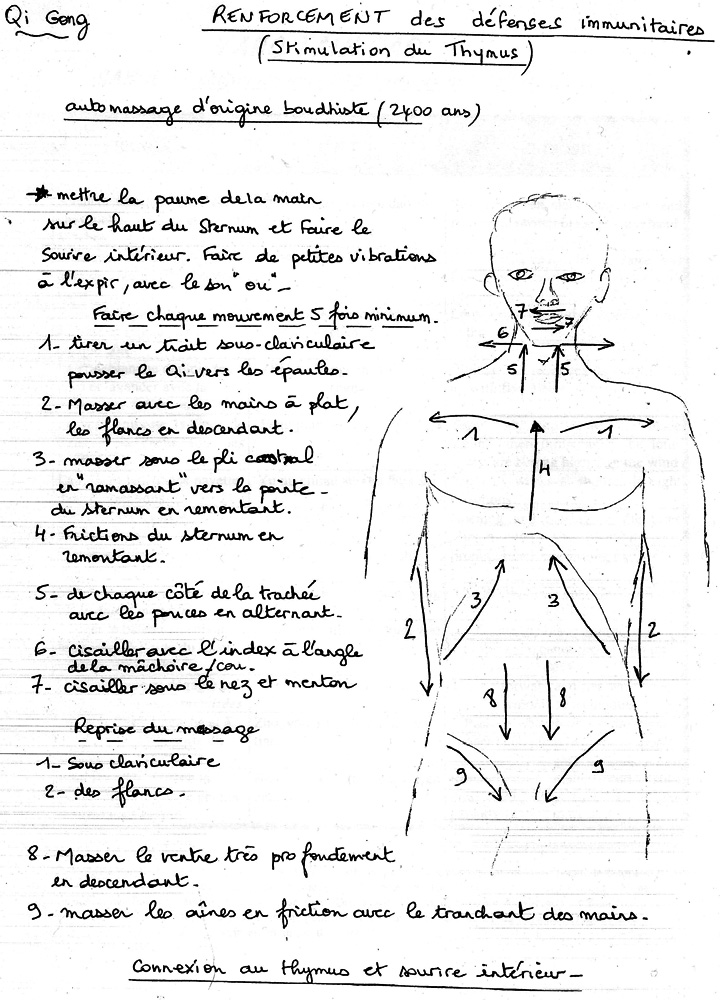 Qi Gong
RENFORCEMENT des défenses immunitaires
(Stimulation du Thymus)
automassage d'origine boudhiste (2400 ans)
mettre la paume de la main
sur le haut du Sternum et Faire le
Sourire intérieur. Faire de petites vibrations
à l'expir, avec le son "ou" -
Faire chaque mouvement 5 fois minimum.
1- tirer un trait sous-claviculaire
pousser le Qi vers les épaules.
2- Masser avec les mains à plat,
les flancs en descendant.
3- masser sous le pli costal
en "ramassant" vers la pointe
du sternum en remontant.
4- Frictions du sternum en
remontant.
5- de chaque côté de la trachée
avec les pouces en alternant.
6- Cisailler avec l'index à l'angle
de la mâchoire/cou.
7- cisailler sous le nez et menton
Reprise du massage
1- Sous claviculaire
2- des flancs.
8- Masser le ventre très profondément
en descendant.
9- masser les aînes en friction avec le tranchant des mains.
Connexion au thymus et sourire intérieur -
7
7
6
5
5
1
1
4
3
3
2
2
8
8
9
9